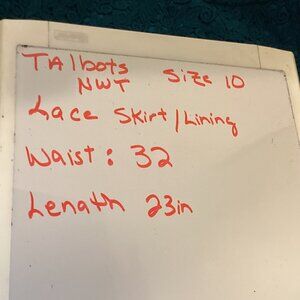 TAlbots Size 10
NWT
Lace Skirt/Lining
Waist: 32
Lenath 23in